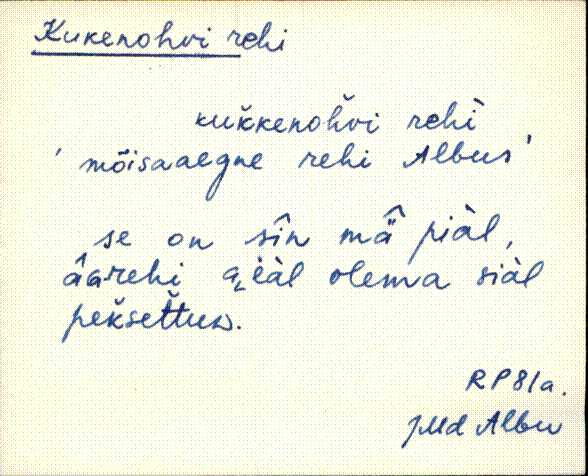 Kukenohvi rehi
kuk̆kenoh̆vi rehì
' mõisaaegne rehi Albus '
se on sîn mä̂ piàl,
âarehi a͔èàl olema siàl
pek̆set̆tus.
RP81a.
JMd Albu